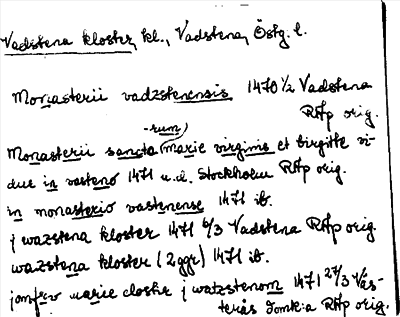 Vadstena kloster, kl., Vadstena, Östg. l.
Monasterii vadzstenensis 1470 1/2 Vadstena
RAp orig.
-rum)
Monasterii sancta (marie virginis et birgitte vi-
due in vasteno 1471 u.d. Stockholm RAp orig.
in monasterio vastenense 1471 ib.
j wazstena kloster 1471 6/3 Vadstena RAp orig.
wazstena kloster (2 ggr) 1471 ib.
jomfrv marie closter j watzstenom 1471 27/3 Väs-
terås domk:a RAp orig.